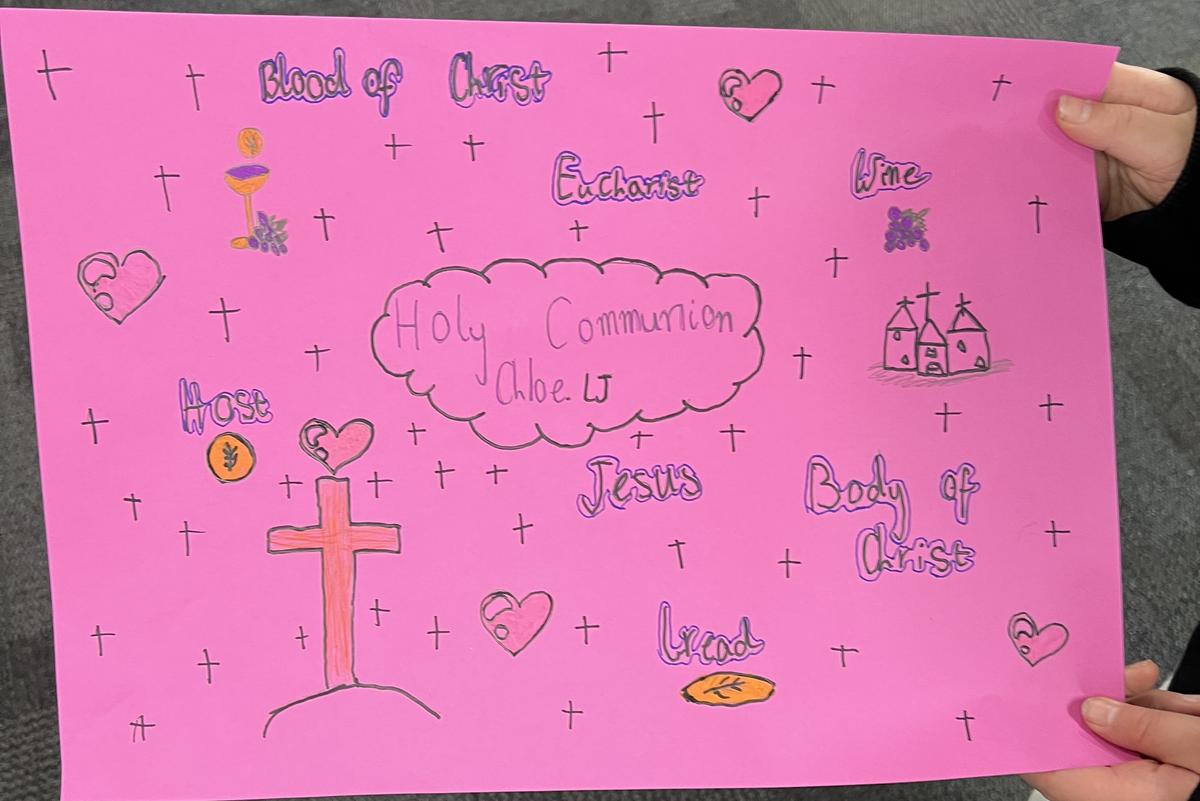 Blood of Christ
Eucharist
Wine
Holy Communion
Chloe. LJ
Host
Jesus
Body of
Christ
bread